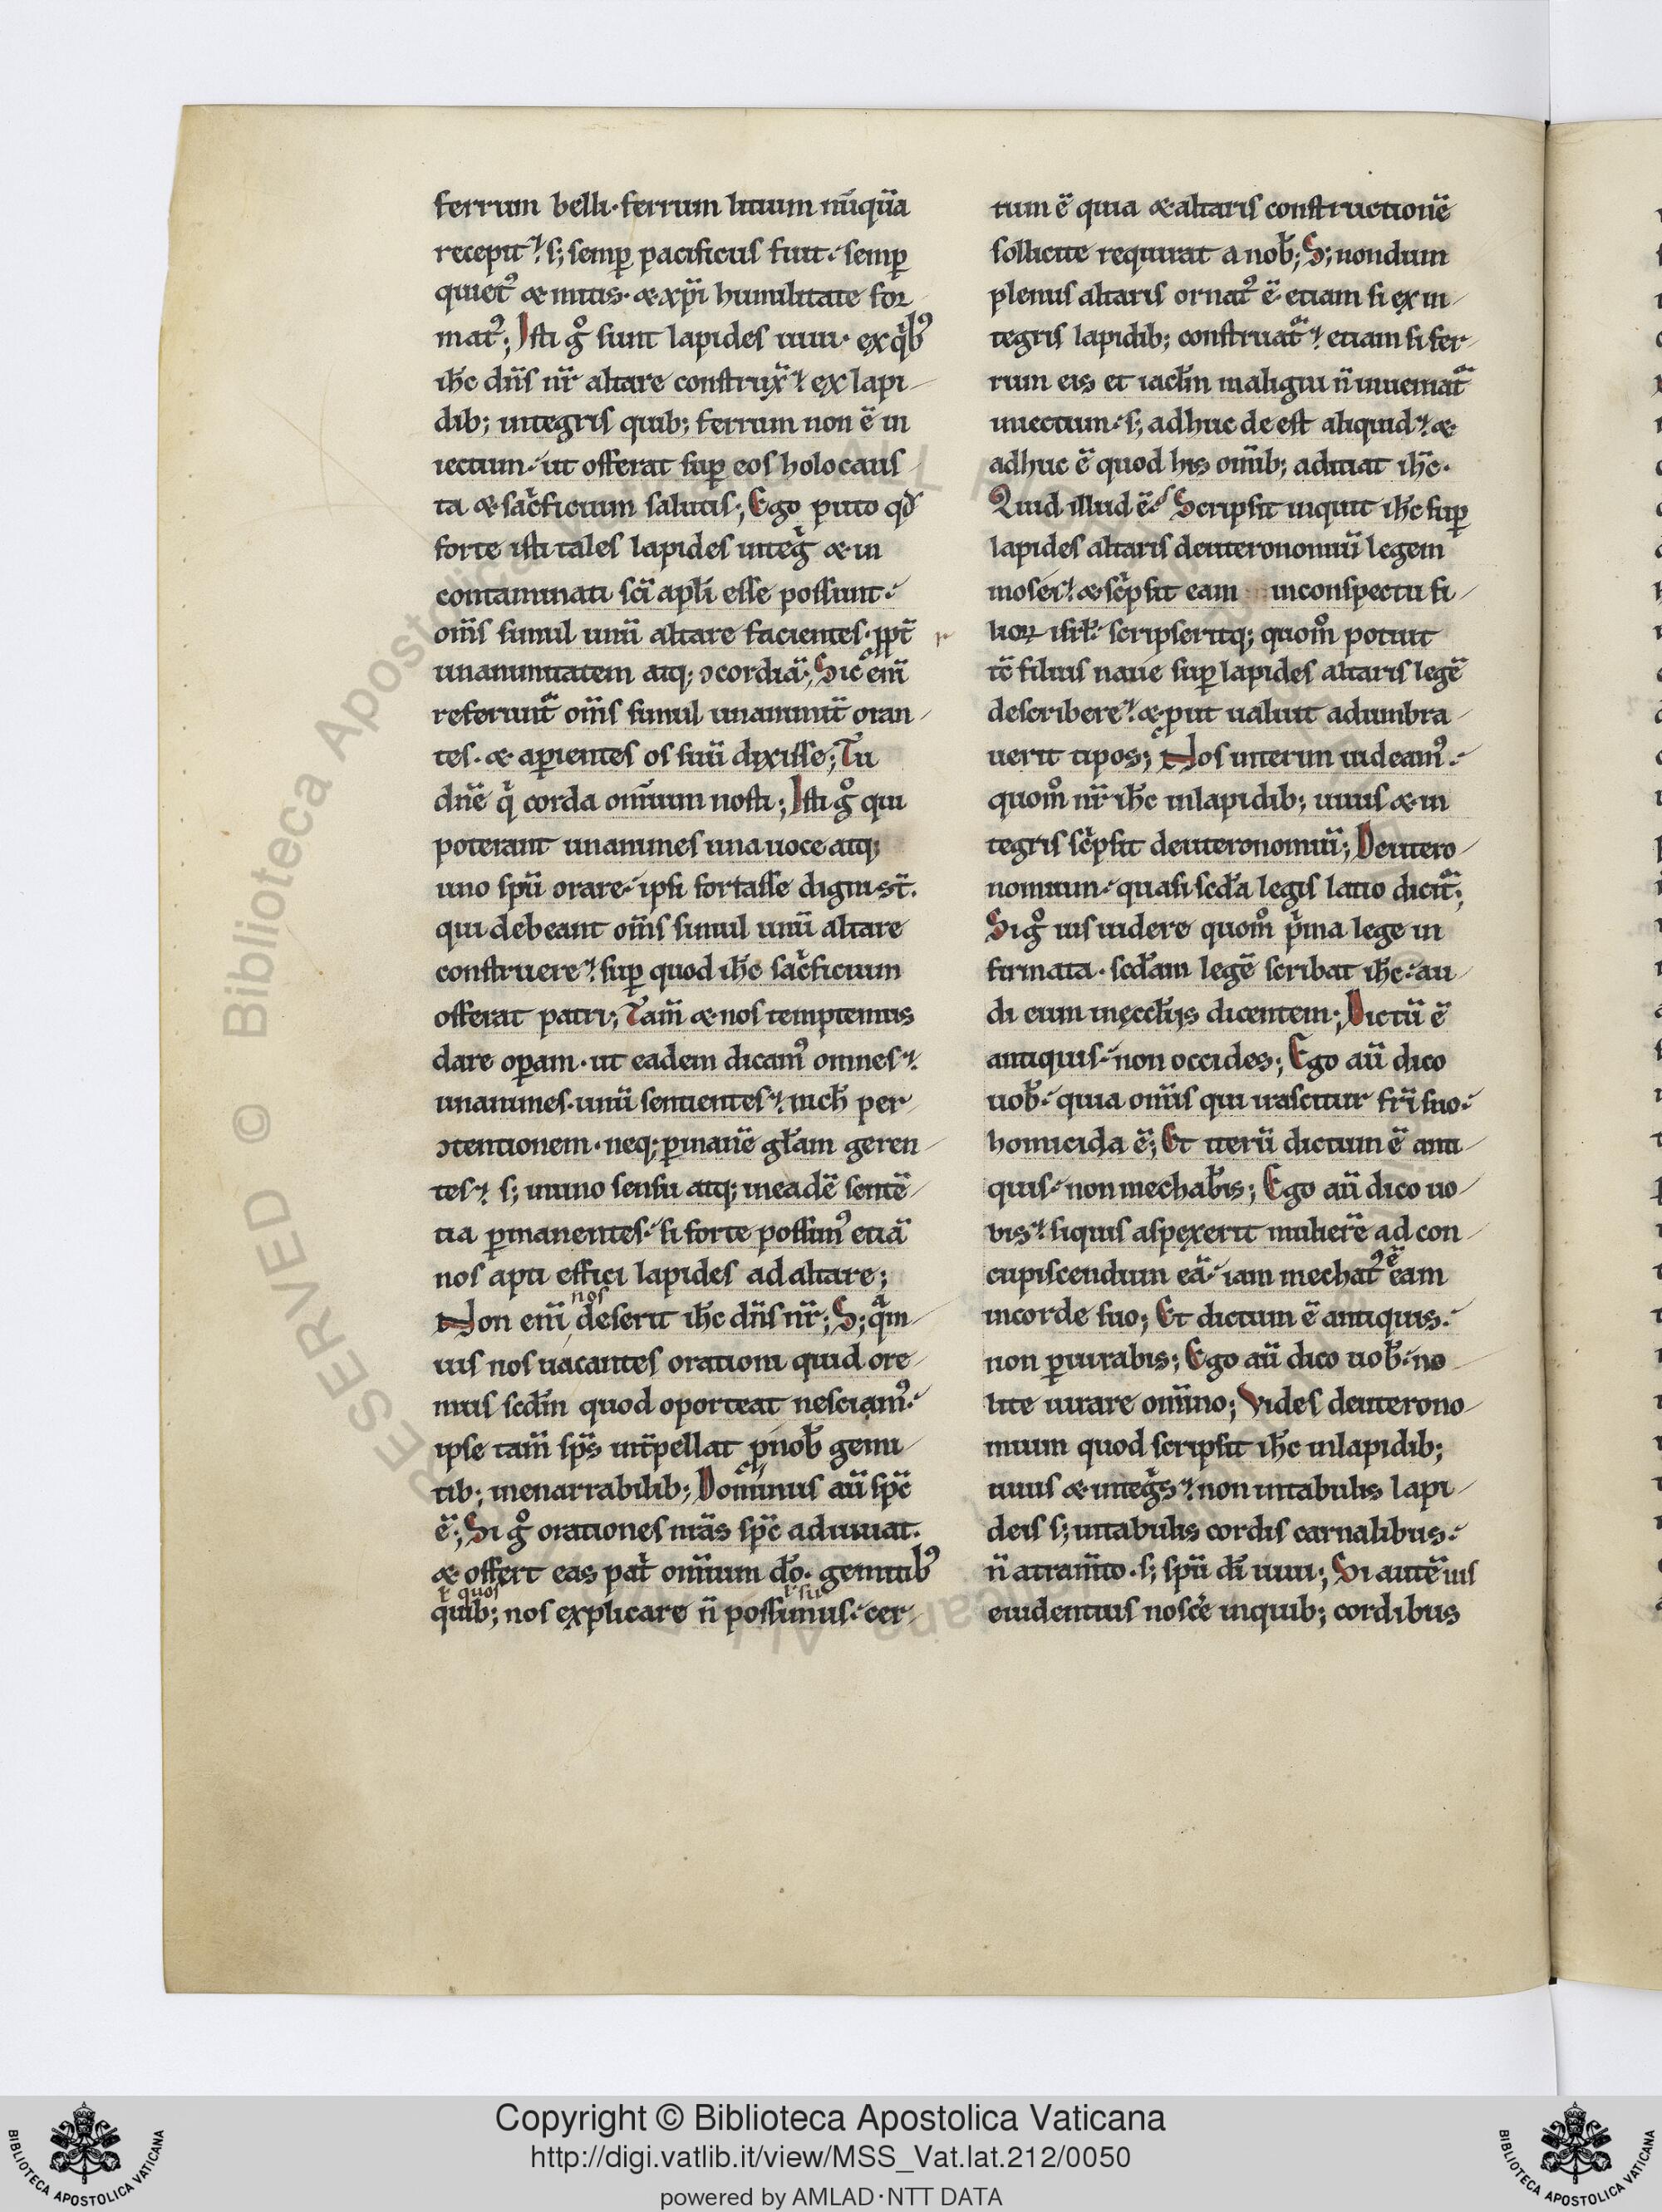 ferrum belli· ferrum litium nūquā
recepit. s; semꝑ pacificus fuit. semꝑ
quietꝰ & mitis· & xp̄i humilitate for
matꝰ; Isti gͦ sunt lapides uiui· ex qͥbꝰ
ih̄c dn̄s nr̄ altare construxͣ. ex lapi
dib; integris quib; ferrum non ē in
iectum. ut offerat suꝑ eos holocaus
ta & sacͥficium salutis; Ego puto qđ
forte isti tales lapides integͥ & in
contaminati sc̄i apl̄i esse possunt.
om̄s simul unū altare facientes· ꝓpt̄
unanimitatem atq; ɔcordiā; Sic enī
referuntͬ om̄s simul unanimit̄ oran
tes· & aꝑientes os suū dixisse; Tu
dn̄e qͥ corda omīum nosti; Isti gͦ qui
poterant unanimes una uoce atq;
uno sp̄u orare. ipsi fortasse digni st̄.
qui debeant om̄s simul unū altare
construere. suꝑ quod ih̄c sacͥficium
offerat patri; Tam̄ & nos temptemus
dare oꝑam· ut eadem dicamꝰ omnes.
unanimes· unū sentientes. nich̄ per
ɔtentionem· neq; ꝑ inanē gl̄am geren
tes. s; in uno sensu atq; in eadē sentē
tia ꝑmanentes. si forte possimꝰ etiā
nos apti effici lapides ad altare;
nos
Non enī deserit ih̄c dn̄s nr̄; S; qͣm
uis nos uacantes orationi quid ore
mus scd̄m quod oporteat nesciamꝰ.
ipse tam̄ sp̄s int̄pellat ꝓ nob̄ gemi
tib; inenarrabilib; Dominus aū sp̄c
ē; Si gͦ orationes nr̄as sp̄c adiuuat.
& offert eas patͥ omīum do̅· gemitibꝰ
ł quos ł su
quib; nos explicare n̄ possumus. cer
tum ē quia & altaris constructionē
sollicite requirat a nob̄; S; nondum
plenus altaris ornatꝰ ē· etiam si ex in
tegris lapidib; construatͬ. etiam si fer
rum eis et iacl̄m maligni n̄ inueniatͬ
iniectum. s; adhuc de est aliquid. &
adhuc ē quod his om̄ib; adiciat ih̄c·
Quid illud ē. Scripsit inquit ih̄c suꝑ
lapides altaris deuteronomiū legem
mosei. & scͥpsit eam in conspectu fi
lioꝝ isrl̄. scripseritq; quom̊ potuit
tc̄ filius naue suꝑ lapides altaris legē
describere. & ꝓut ualuit adumbra
uerit tipos; Nos interim uideamꝰ.
quom̊ nr̄ ih̄c in lapidib; uiuis & in
tegris scͥpsit deuteronomiū; Deutero
nomium. quasi scd̄a legis latio dicitͬ;
Si gͦ uis uidere quom̊ pͥma lege in
firmata· scd̄am legē scribat ih̄c. au
di eum in ęcclijs dicentem; Dictū ē
antiquis. non occides; Ego aū dico
uob̄. quia om̄is qui irascitur fr̄i suo.
homicida ē; Et iterū dictum ē anti
quis. non mechab̄is; Ego aū dico uo
bis. siquis aspexerit mulierē ad con
cupiscendum eā. iam mechatꝰ ē eam
in corde suo; Et dictum ē antiquis.
non ꝑiurabis; Ego aū dico uob̄. no
lite iurare om̄ino; Vides deuterono
mium quod scripsit ih̄c in lapidib;
uiuis & integͥs. non in tabulis lapi
deis s; in tabulis cordis carnalibus.
n̄ atram̄to· s; sp̄u di̅ uiui; Si autē uis
euidentius noscͤe in quib; cordibus
Copyright © Biblioteca Apostolica Vaticana
http://digi.vatlib.it/view/MSS_Vat.lat.212/0050
powered by AMLAD·NTT DATA
BIBLIOTECA APOSTOLICA VATICANA
BIBLIOTECA APOSTOLICA VATICANA